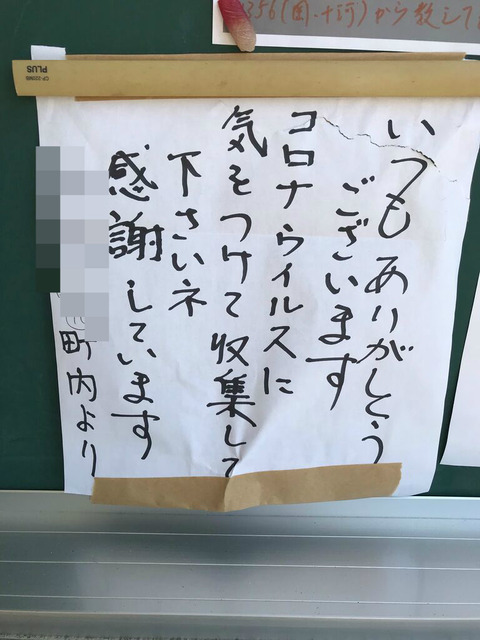 いつもありがとう
ございます
コロナウイルスに
気をつけて収集して
下さいネ
感謝しています
町内より
PLUS